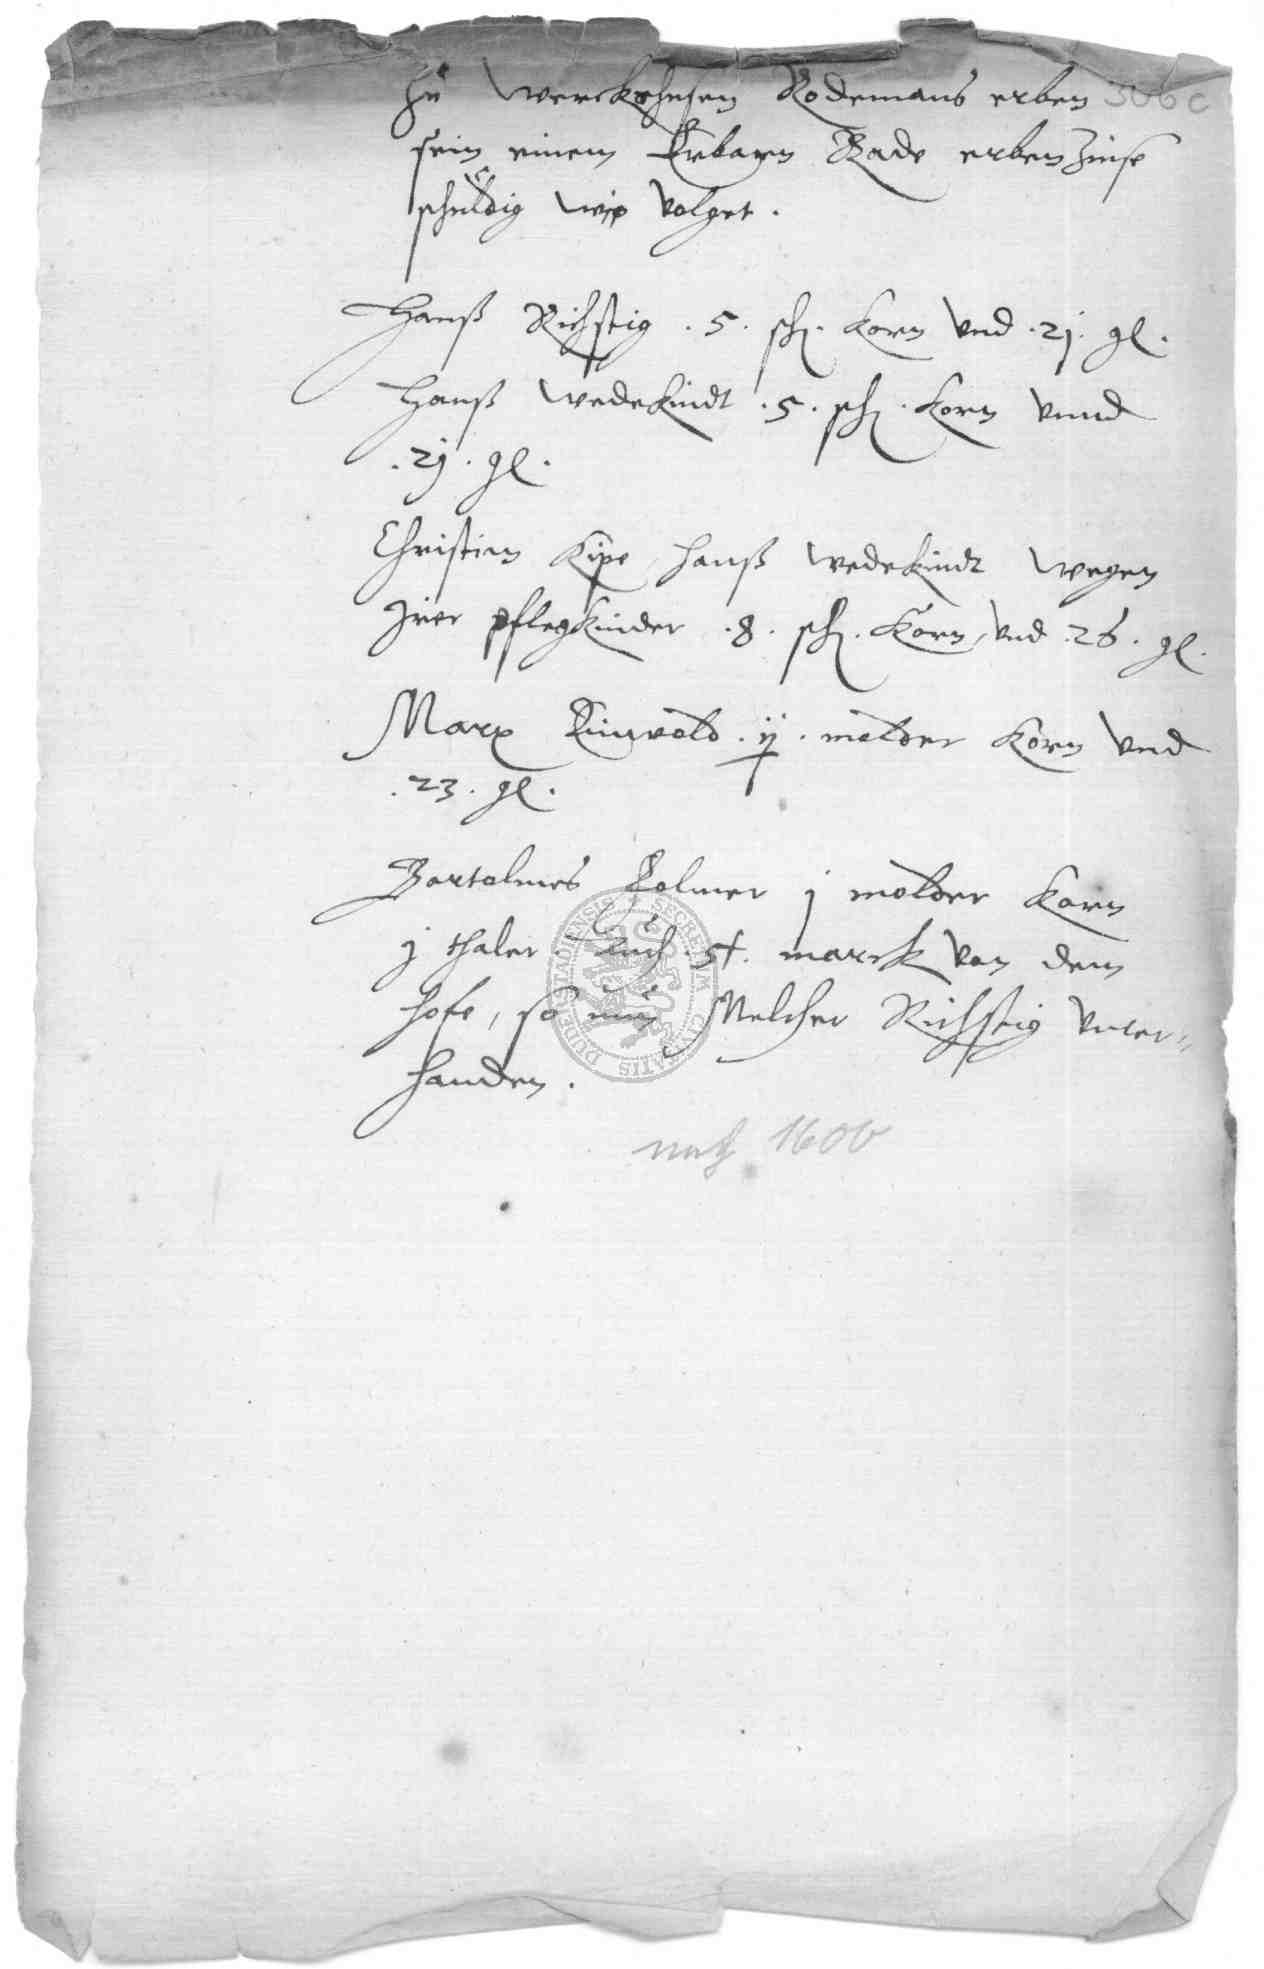 Zu Werckshusen Rodemans erben 306 c
sein einem Erbarn Rade erbenZinse
schuldig wie volget.
Hanß Richstig . 5 . sch. Korn vnd . 2j . gl.
Hanß Wedekindt . 5 . sch. Korn vnnd
. 2j . gl.
Christian Kipe, Hanß Wedekindt wegen
Jrer pflegkinder . 8 . sch. Korn, vnd . 26 . gl.
Marx . ij . molder Korn vnd
. 23 . gl.
Bartolmes Folmer j molder Korn
j thaler. Auch . marck von dem
hofe, so nun Melcher Richstig vnter-
handen.
nach 1600
SECRETUM CIVITATIS DUDERSTADIENSIS